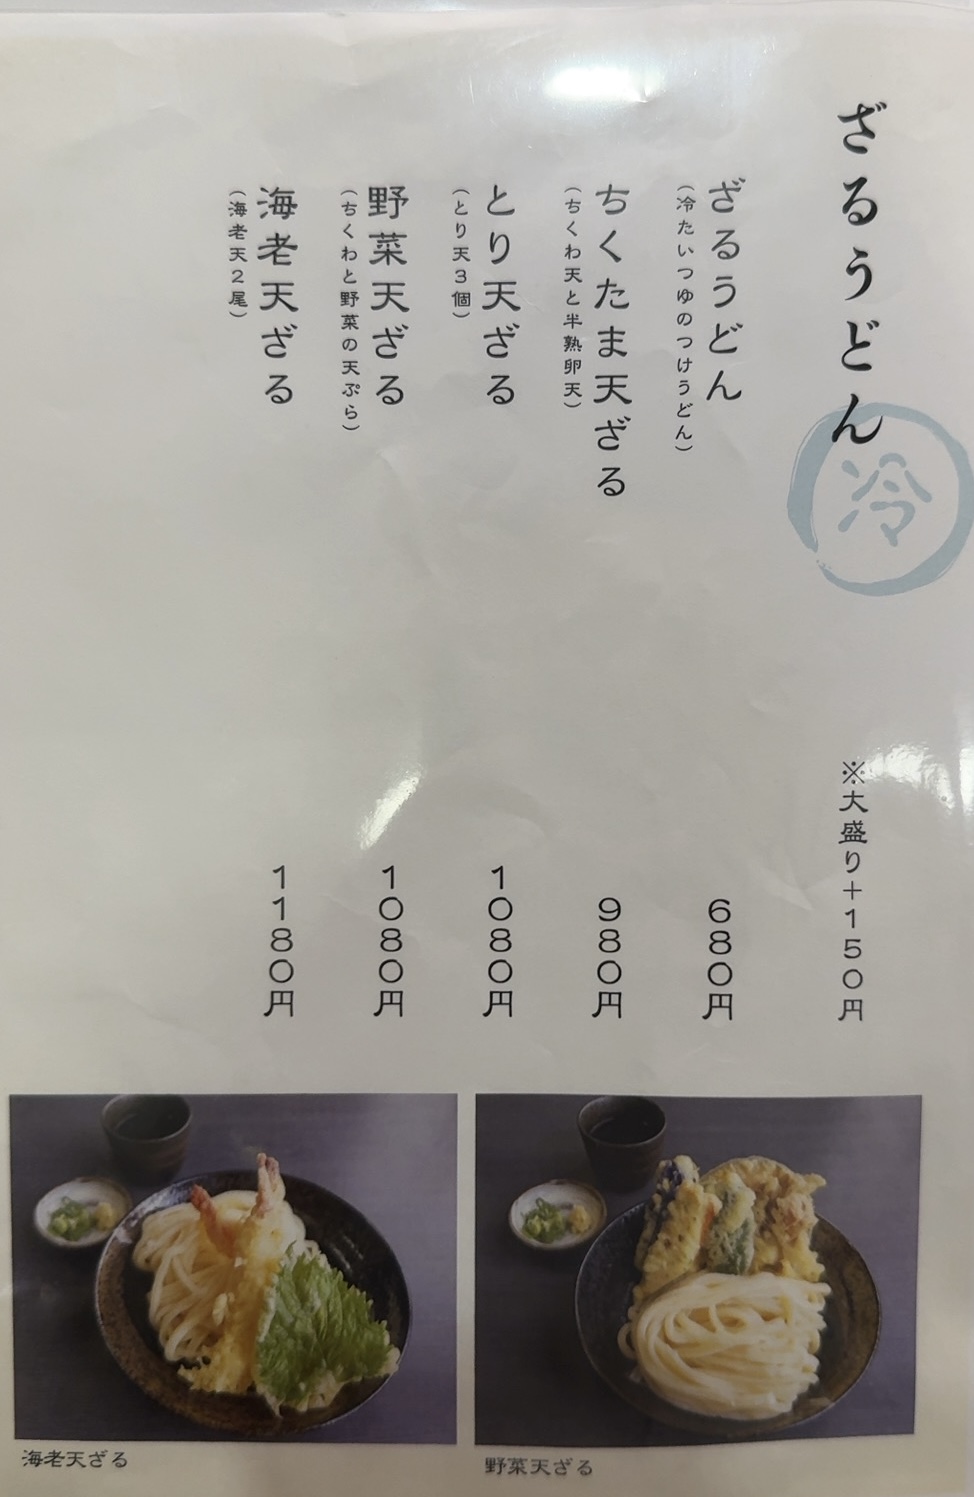 ざるうどん
冷
※大盛り＋150円
ざるうどん
（冷たいつゆのつけうどん）
680円
ちくたま天ざる
（ちくわ天と半熟卵天）
980円
とり天ざる
（とり天3個）
1080円
野菜天ざる
（ちくわと野菜の天ぷら）
1080円
海老天ざる
（海老天2尾）
1180円
海老天ざる
野菜天ざる